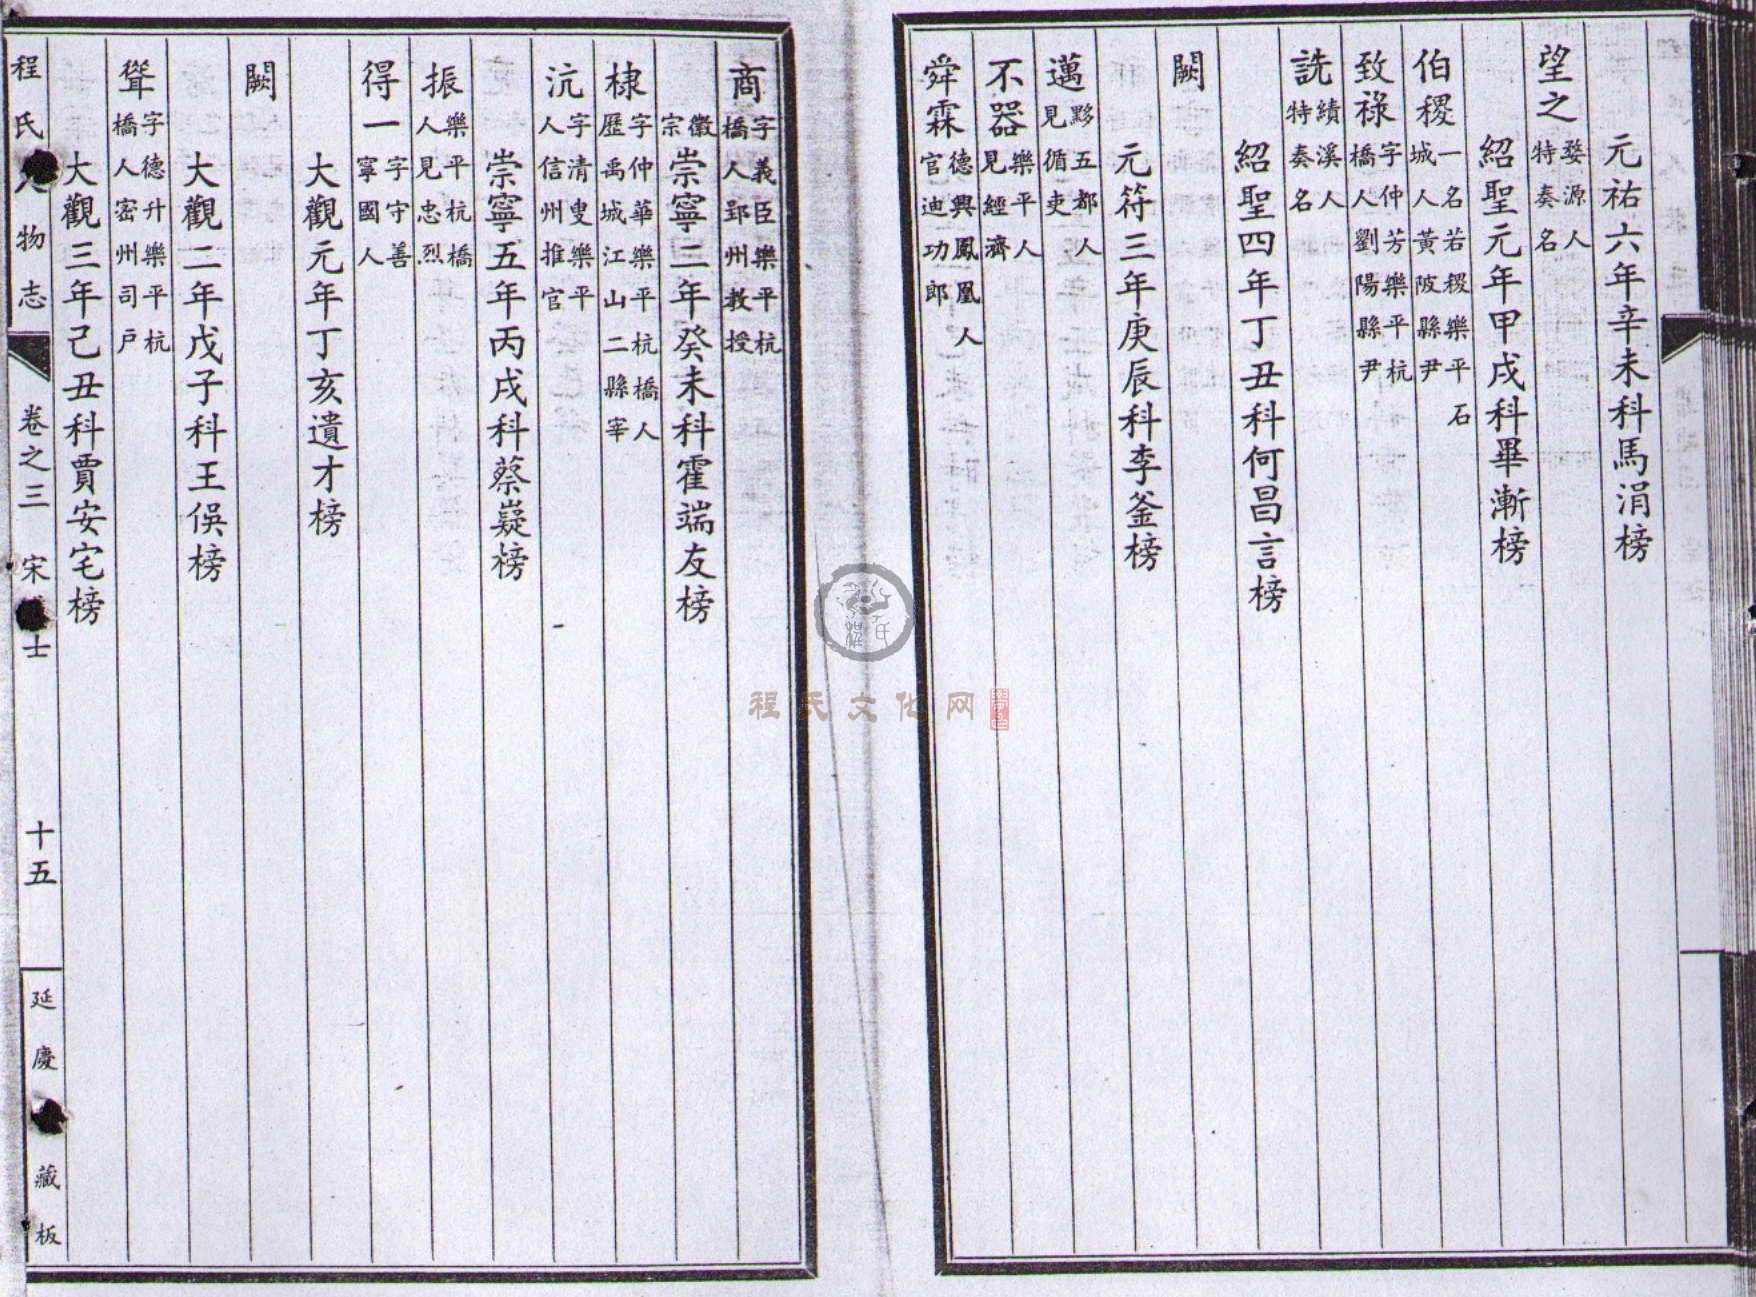 元祐六年辛未科馬涓榜
望之 婺源人
特奏名
紹聖元年甲戌科畢漸榜
伯稷 一名若稷樂平石
城人黃陂縣尹
致祿 字仲芳樂平杭
橋人劉陽縣尹
詵 績溪人
特奏名
紹聖四年丁丑科何昌言榜
闕
元符三年庚辰科李釜榜
邁 黟五都人
見循吏
不器 樂平人
見經濟
舜霖 德興鳳凰人
官迪功郎
商 字義臣樂平杭
橋人郢州教授
徽宗 崇寧二年癸未科霍端友榜
棣 字仲華樂平杭橋人
歷禹城江山二縣宰
沆 字清叟樂平
人信州推官
崇寧五年丙戌科蔡嶷榜
振 樂平杭橋
人見忠烈
得一 字守善
寧國人
大觀元年丁亥遺才榜
闕
大觀二年戊子科王俁榜
聳 字德升樂平杭
橋人密州司戶
大觀三年己丑科賈安宅榜
程氏物志 卷之三 宋士 十五 延慶藏板
程氏文化网